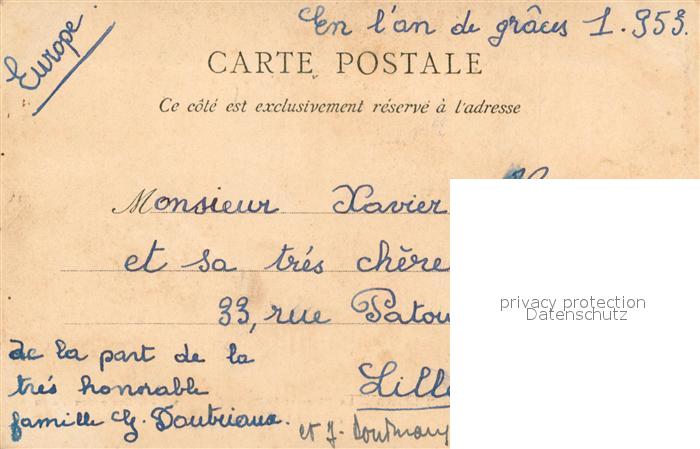 En l'an de grâces 1.953.
Europe
CARTE POSTALE
Ce côté est exclusivement réservé à l'adresse
Monsieur Xavier
et sa trés chère
33, rue Patou
privacy protection
Datenschutz
Lille
de la part de la
trés honorable
famille
et J.